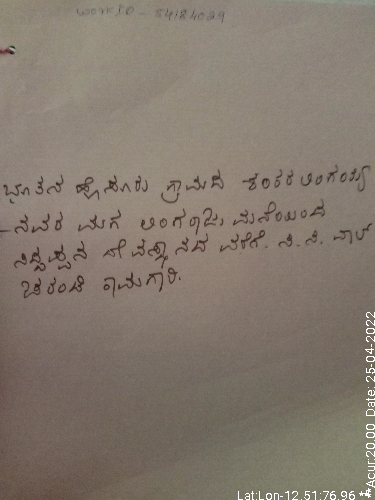 ಭೂತನ ಹೊಸೂರು ಗ್ರಾಮದ ಶಂಕರಲಿಂಗಯ್ಯ
ನವರ ಮಗ ಲಿಂಗರಾಜು ಮನೆಯಿಂದ
ಸಿದ್ದಪ್ಪನ ದೇವಸ್ಥಾನದ ವರೆಗೆ. ಸಿ. ಸಿ.
ಚರಂಡಿ ಕಾಮಗಾರಿ.
Lat:Lon-12.51:76.96 **Acur:20.00 Date: 25-04-2022